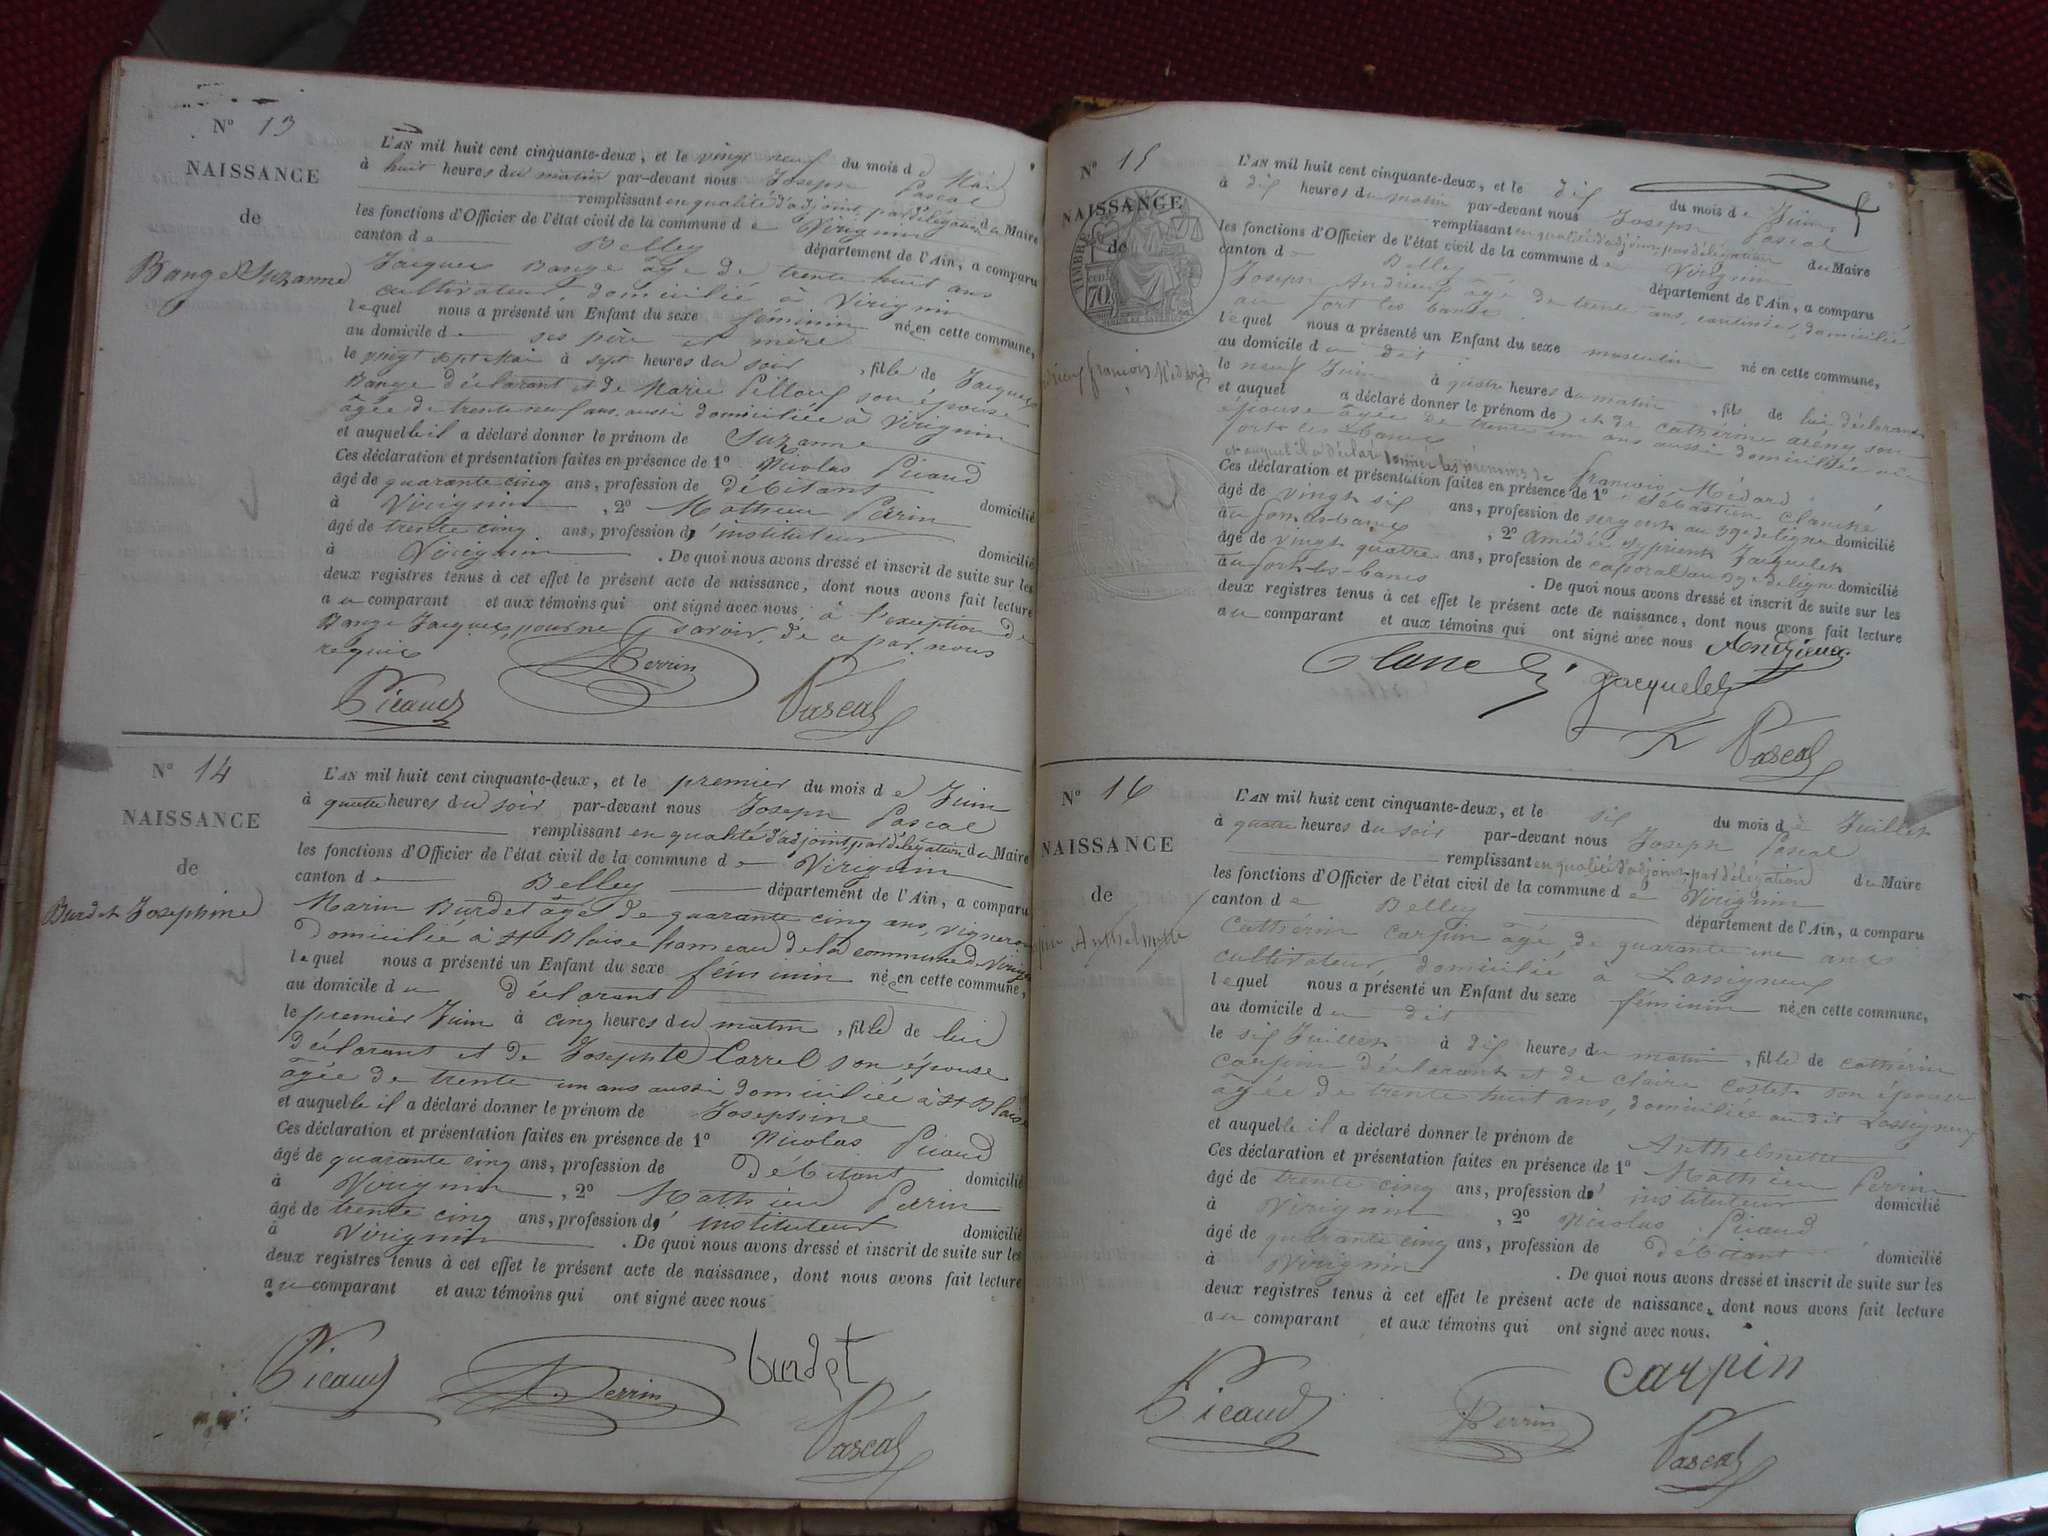 N° 13
NAISSANCE
de
Bange Suzanne
L'AN mil huit cent cinquante-deux, et le vingt neuf du mois de Mai
à huit heures du matin par-devant nous Joseph Pascal
remplissant en qualité d'adjoint par délégation du Maire
les fonctions d'Officier de l'état civil de la commune de Virignin
canton de Belley département de l'Ain, a comparu
Jacques Bange âgé de trente huit ans
cultivateur, domicilié à Virignin
lequel nous a présenté un Enfant du sexe féminin né en cette commune,
au domicile de ses père et mère
le vingt sept Mai à sept heures du soir, fille de Jacques
Bange déclarant et de Marie Pillouf son épouse
âgée de trente neuf ans, aussi domiciliée à Virignin
et auquelle il a déclaré donner le prénom de Suzanne
Ces déclaration et présentation faites en présence de 1° Nicolas Picaud
âgé de quarante cinq ans, profession de débitant domicilié
à Virignin, 2° Mathieu Perrin
âgé de trente cinq ans, profession d'instituteur domicilié
à Virignin. De quoi nous avons dressé et inscrit de suite sur les
deux registres tenus à cet effet le présent acte de naissance, dont nous avons fait lecture
au comparant et aux témoins qui ont signé avec nous, à l'exception de
Bange Jacques, pour ne savoir, de ce par nous
requis
Perrin
Picaud Pascal
N° 14
NAISSANCE
de
Burdet Josephine
L'AN mil huit cent cinquante-deux, et le premier du mois de Juin
à quatre heures du soir par-devant nous Joseph Pascal
remplissant en qualité d'adjoint par délégation du Maire
les fonctions d'Officier de l'état civil de la commune de Virignin
canton de Belley département de l'Ain, a comparu
Marin Burdet âgé de quarante cinq ans, vigneron
domicilié à St Blaise hameau de la commune de Virignin
lequel nous a présenté un Enfant du sexe féminin né en cette commune,
au domicile du déclarant
le premier Juin à cinq heures du matin, fille de lui
déclarant et de Josephte Carrel son épouse
âgée de trente un ans aussi domiciliée à St Blaise
et auquelle il a déclaré donner le prénom de Josephine
Ces déclaration et présentation faites en présence de 1° Nicolas Picaud
âgé de quarante cinq ans, profession de débitant domicilié
à Virignin, 2° Mathieu Perrin
âgé de trente cinq ans, profession d'instituteur domicilié
à Virignin. De quoi nous avons dressé et inscrit de suite sur les
deux registres tenus à cet effet le présent acte de naissance, dont nous avons fait lecture
au comparant et aux témoins qui ont signé avec nous
Picaud Perrin burdet
Pascal
N° 15
NAISSANCE
de
TIMBRE
70
françois Médard
L'AN mil huit cent cinquante-deux, et le dix du mois de Juin
à dix heures du matin par-devant nous Joseph Pascal
remplissant en qualité d'adjoint par délégation du Maire
les fonctions d'Officier de l'état civil de la commune de Virignin
canton de Belley département de l'Ain, a comparu
Joseph Andrieux âgé de trente ans, cantinier, domicilié
au fort les bancs
lequel nous a présenté un Enfant du sexe masculin né en cette commune,
au domicile du dit
le neuf Juin à quatre heures du matin, fils de lui déclarant
et auquel a déclaré donner le prénom de et de Cathérine son
épouse âgée de trente un ans aussi domiciliée au
fort les bancs
et auquel il a déclaré donner les prénoms de françois Médard
Ces déclaration et présentation faites en présence de 1° Sébastien Clanché
âgé de vingt six ans, profession de sergent au 39e de ligne domicilié
au fort les bancs, 2° Amédée Jacquelet
âgé de vingt quatre ans, profession de caporal au 39e de ligne domicilié
au fort-les-bancs. De quoi nous avons dressé et inscrit de suite sur les
deux registres tenus à cet effet le présent acte de naissance, dont nous avons fait lecture
au comparant et aux témoins qui ont signé avec nous Andrieux
Clanché Jacquelet
Pascal
N° 16
NAISSANCE
de
Anthelmette
L'AN mil huit cent cinquante-deux, et le six du mois de Juillet
à quatre heures du soir par-devant nous Joseph Pascal
remplissant en qualité d'adjoint par délégation du Maire
les fonctions d'Officier de l'état civil de la commune de Virignin
canton de Belley département de l'Ain, a comparu
Cathérin Carpin âgé de quarante une ans
cultivateur, domicilié à Lassigneux
lequel nous a présenté un Enfant du sexe féminin né en cette commune,
au domicile du dit
le six Juillet à dix heures du matin, fille de Cathérin
Carpin déclarant et de Claire Costet son épouse
âgée de trente huit ans, domiciliée au dit Lassigneux
et auquelle il a déclaré donner le prénom de Anthelmette
Ces déclaration et présentation faites en présence de 1° Mathieu Perrin
âgé de trente cinq ans, profession d'instituteur domicilié
à Virignin, 2° Nicolas Picaud
âgé de quarante cinq ans, profession de débitant domicilié
à Virignin. De quoi nous avons dressé et inscrit de suite sur les
deux registres tenus à cet effet le présent acte de naissance, dont nous avons fait lecture
au comparant et aux témoins qui ont signé avec nous.
carpin
Picaud Perrin Pascal